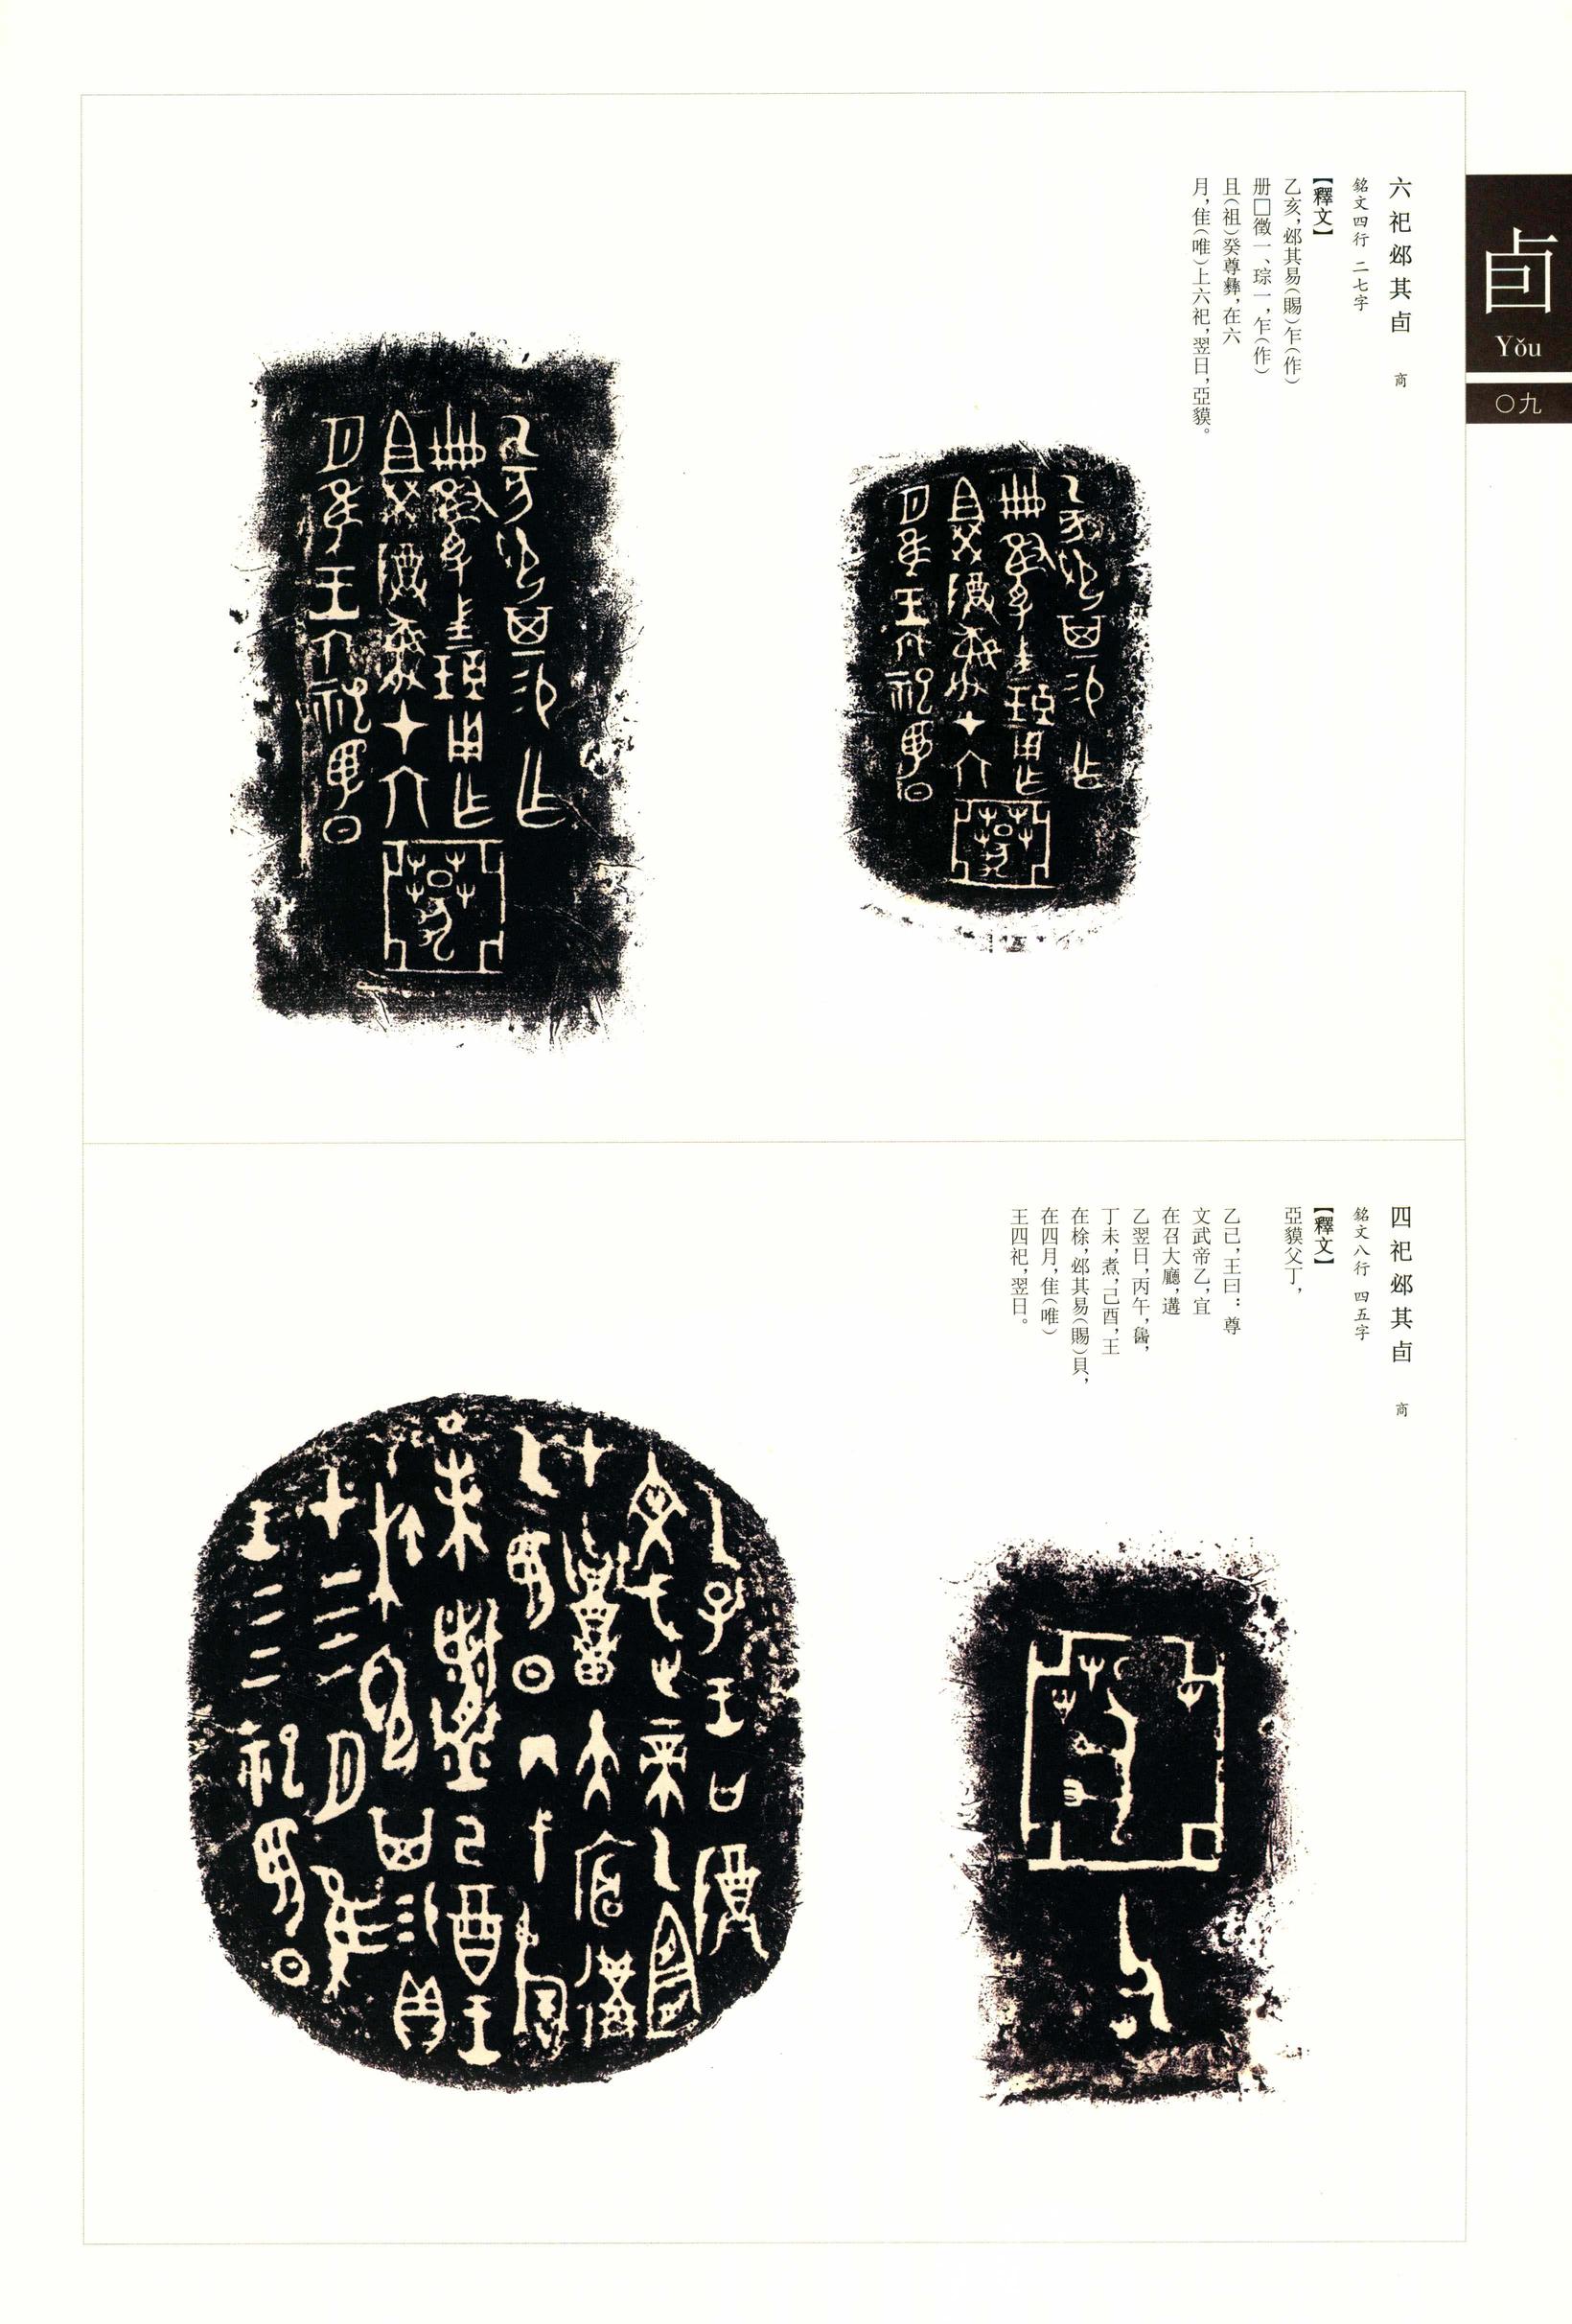 卣
Yǒu
〇九
六祀邲其卣 商
銘文四行 二七字
【釋文】
乙亥，邲其易（賜）乍（作）
册□徵一、琮一，乍（作）
且（祖）癸尊彝，在六
月，隹（唯）上六祀，翌日，亞貘。
四祀邲其卣 商
銘文八行 四五字
【釋文】
亞貘父丁，
乙巳，王曰：尊
文武帝乙，宜
在召大廳，遘
乙翌日，丙午，𪉖，
丁未，煮，己酉，王
在梌，邲其易（賜）貝，
在四月，隹（唯）
王四祀，翌日。